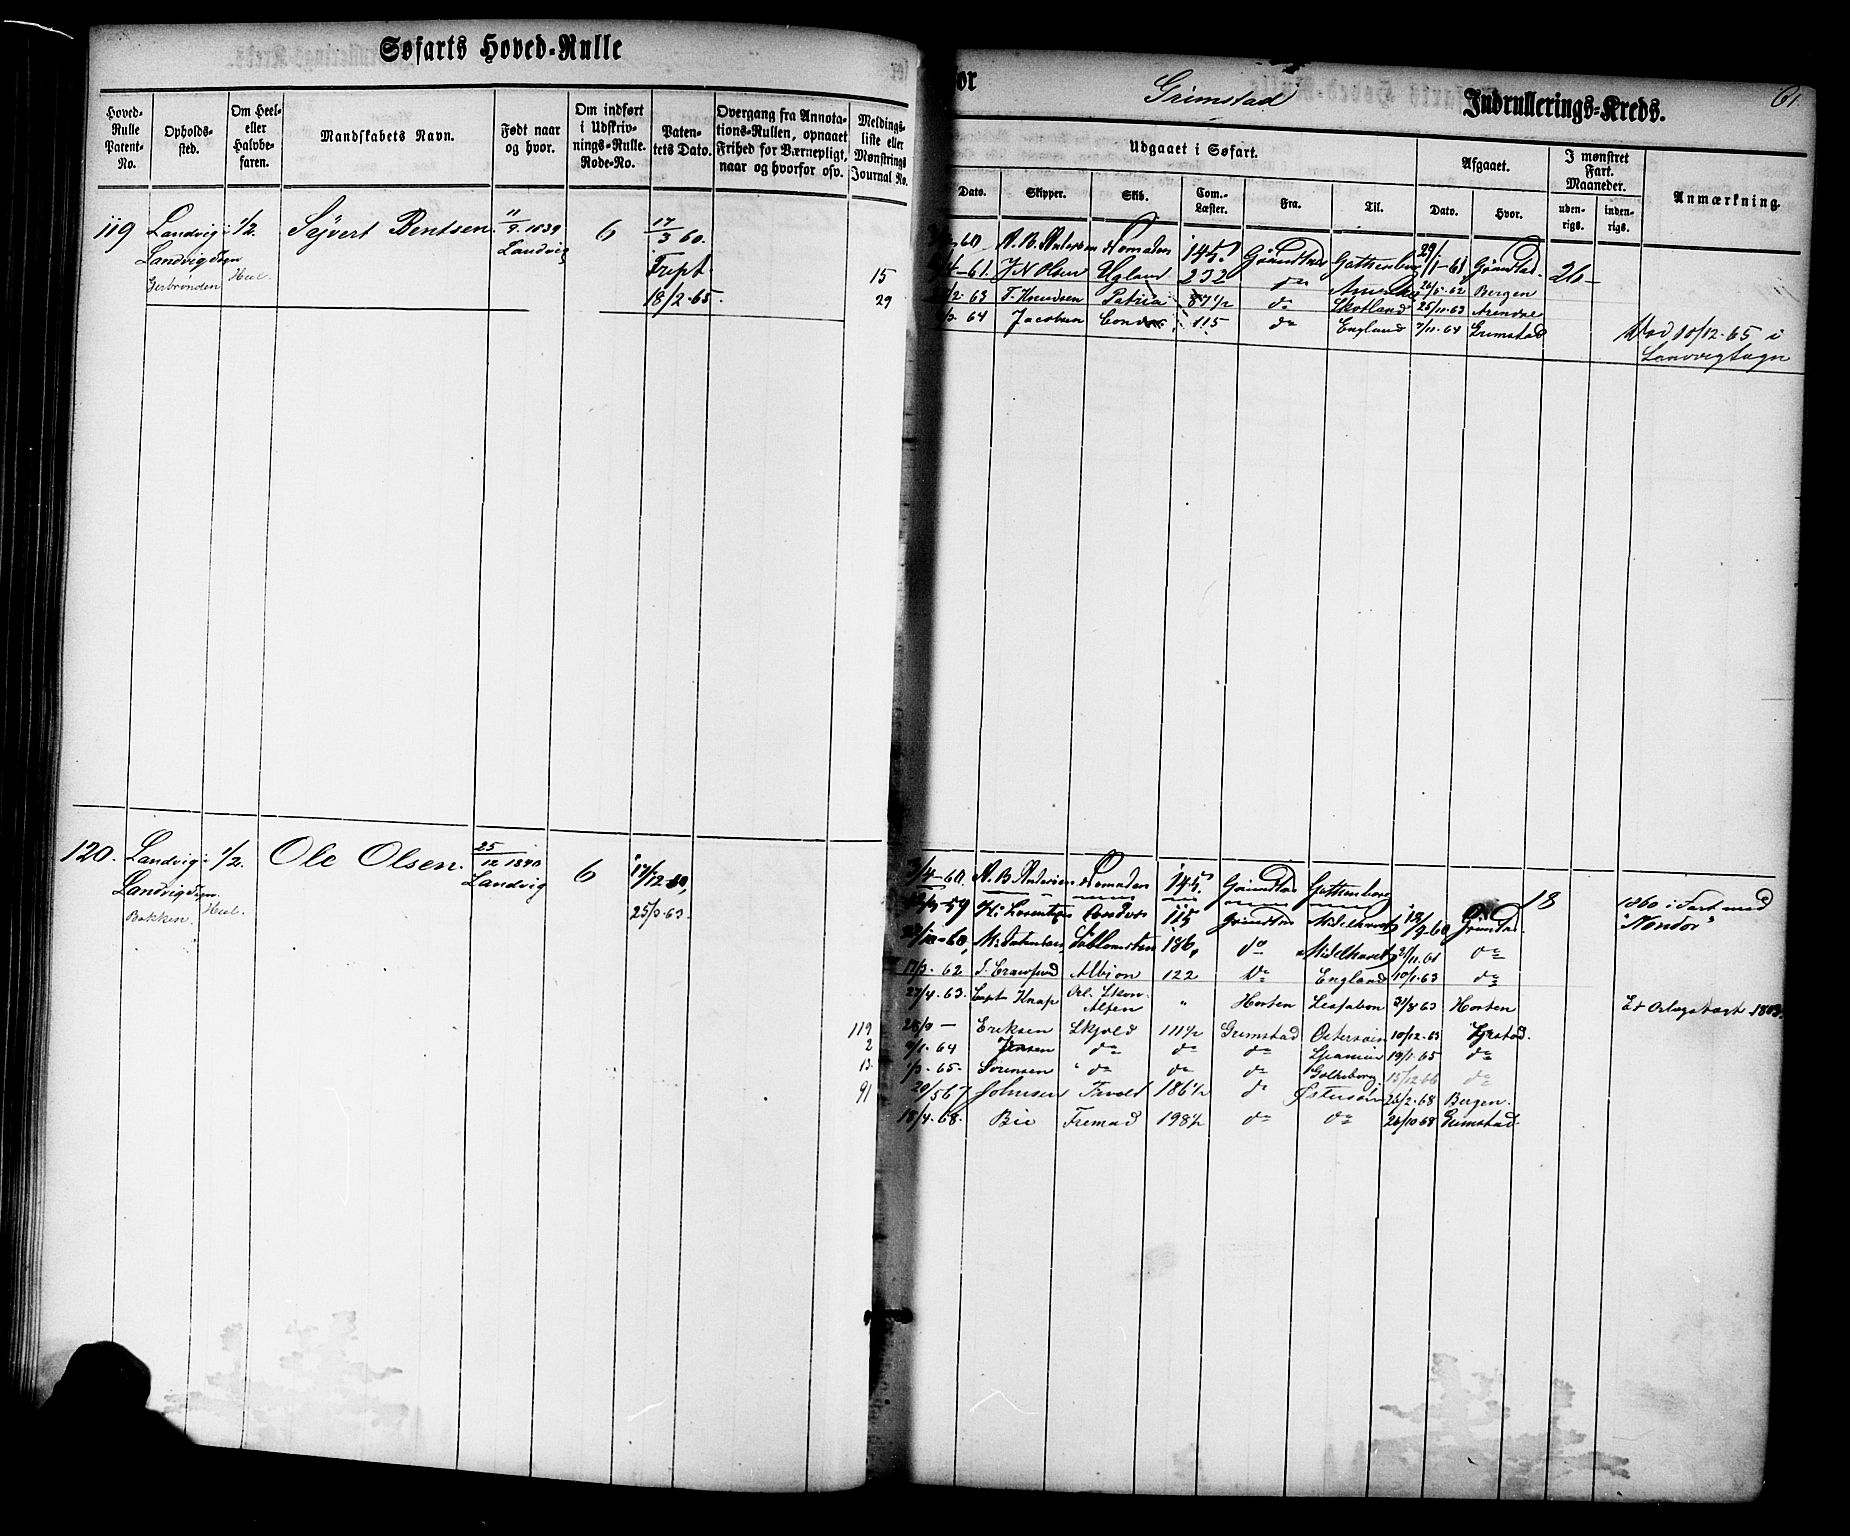 Søfarts Hoved-Rulle
for Grimstad Indrullerings-Kreds. 61.
Hoved-Rulle Patent-No.
Opholds-sted.
Om Heel- eller Halvbe-faren.
Mandskabets Navn.
Født naar og hvor.
Om indført i Udskriv-nings-Rulle. Rode-No.
Paten-tets Dato.
Overgang fra Annota-tions-Rullen, opnaaet Frihed for Værnepligt, naar og hvorfor osv.
Meldings-liste eller Mønstrings Journal No.
Udgaaet i Søfart.
Afgaaet.
I mønstret Fart. Maaneder.
Anmærkning.
Dato. Skipper. Skib. Com.-Læster. Fra. Til. Dato. Hvor. uden-rigs. inden-rigs.
119 Landvig 1/2. Sejvert Bentsen 11/9. 1839 6 17/3 60.
Landvig Sogn Landvig
Heel.
Fript
18/2-65.
60 A. B. Andersen Nomaden 145. Grimstad Gothenborg 29/1-61 Grimstad 26
15 61. J N Olsen Ugland 232 do Amerika 24/5-62 Bergen
29 63 T. Knudsen Patria 87 1/2 do Skotland 25/11-63 Arendal
64 Jacobsen Condor 115 do England 7/11-64 Grimstad
Død 10/12-65 i
Landvig Sogn
120. Landvig 1/2. Ole Olsen. 25/12 1840 6
Landvig Sogn Landvig
Bakken. Heel. 25/3-63.
3/4-60. A. B. Andersen Nomaden 145. Grimstad Gothenborg
59 Condor 115 Grimstad Middelhavet 18/9-60 Grimstad 18 1860 i Fart med
"Kondor"
60, 186, do Middelhavet 21/11-61 do
17/3-62 J. Crawfurd Albion 122 do England 10/1-63 do
27/4-63. Capt Knap Alfen " Horten Lissabon 31/8 63 Horten Et Orlogstogt 1863.
119 28/9 — Eriksen Skjold 111 1/2 Grimstad Østersøen 10/12-63
2 9/1-64 Jensen do do do Spanien 19/1-65 do
13. 1/3-65. Sørensen do do do Gotheborg. 15/12 66 do
91 20/5 67 Johnsen 186 1/2 do Østersøen 25/2-68 Bergen.
18/4-68. Bie Fremad 198 1/2 do do 26/10 68 Grimstad.